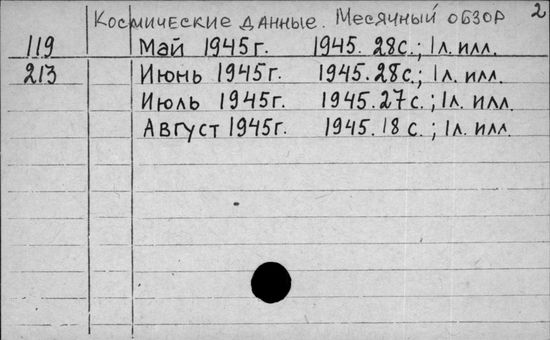 Космические данные. Месячный обзор 2
119 Май 1945г. 1945. 28с.; 1л. илл.
213 Июнь 1945г. 1945. 28с.; 1л. илл.
Июль 1945г. 1945. 27с.; 1л. илл.
Август 1945г. 1945. 18 с.; 1л. илл.